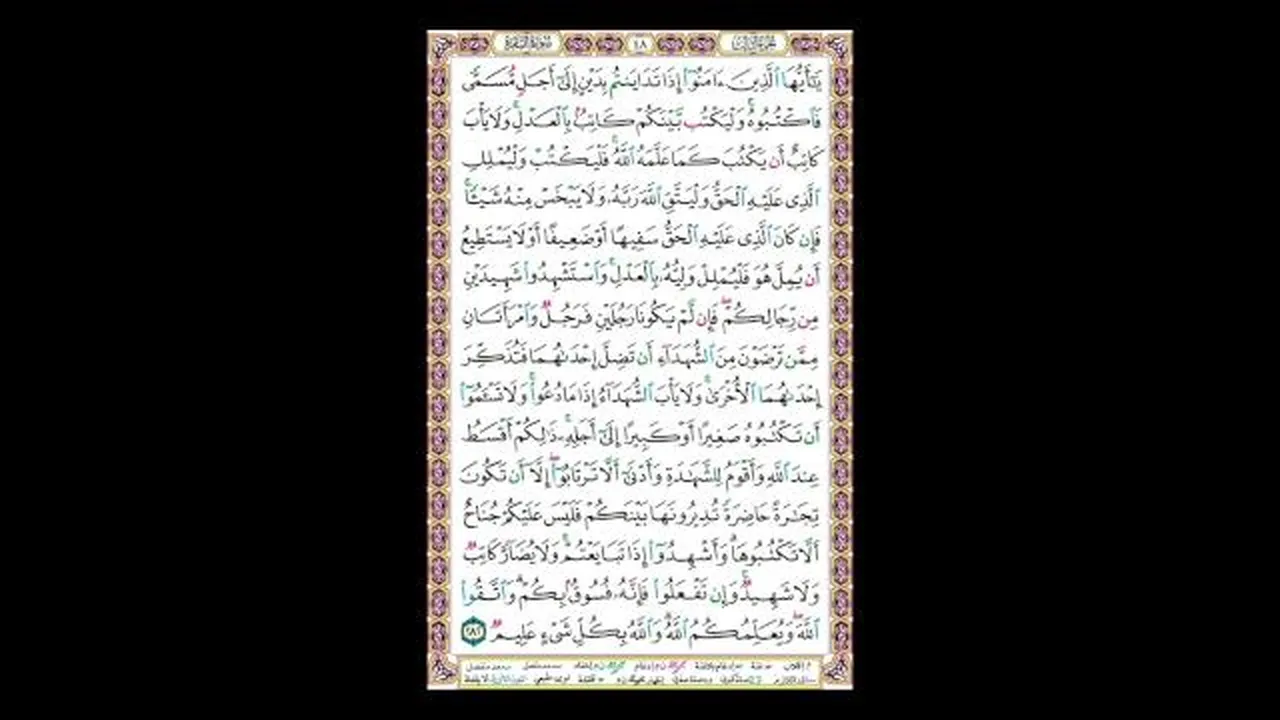 سُورَةُ البَقَرَةِ ٤٨ الجُزْءُ الثَّالِثُ
يَٰٓأَيُّهَا ٱلَّذِينَ ءَامَنُوٓا۟ إِذَا تَدَايَنتُم بِدَيْنٍ إِلَىٰٓ أَجَلٍ مُّسَمًّى
فَٱكْتُبُوهُ ۚ وَلْيَكْتُب بَّيْنَكُمْ كَاتِبٌۢ بِٱلْعَدْلِ ۚ وَلَا يَأْبَ
كَاتِبٌ أَن يَكْتُبَ كَمَا عَلَّمَهُ ٱللَّهُ ۚ فَلْيَكْتُبْ وَلْيُمْلِلِ
ٱلَّذِى عَلَيْهِ ٱلْحَقُّ وَلْيَتَّقِ ٱللَّهَ رَبَّهُۥ وَلَا يَبْخَسْ مِنْهُ شَيْـًٔا ۚ
فَإِن كَانَ ٱلَّذِى عَلَيْهِ ٱلْحَقُّ سَفِيهًا أَوْ ضَعِيفًا أَوْ لَا يَسْتَطِيعُ
أَن يُمِلَّ هُوَ فَلْيُمْلِلْ وَلِيُّهُۥ بِٱلْعَدْلِ ۚ وَٱسْتَشْهِدُوا۟ شَهِيدَيْنِ
مِن رِّجَالِكُمْ ۖ فَإِن لَّمْ يَكُونَا رَجُلَيْنِ فَرَجُلٌ وَٱمْرَأَتَانِ
مِمَّن تَرْضَوْنَ مِنَ ٱلشُّهَدَآءِ أَن تَضِلَّ إِحْدَىٰهُمَا فَتُذَكِّرَ
إِحْدَىٰهُمَا ٱلْأُخْرَىٰ ۚ وَلَا يَأْبَ ٱلشُّهَدَآءُ إِذَا مَا دُعُوا۟ ۚ وَلَا تَسْـَٔمُوٓا۟
أَن تَكْتُبُوهُ صَغِيرًا أَوْ كَبِيرًا إِلَىٰٓ أَجَلِهِۦ ۚ ذَٰلِكُمْ أَقْسَطُ
عِندَ ٱللَّهِ وَأَقْوَمُ لِلشَّهَٰدَةِ وَأَدْنَىٰٓ أَلَّا تَرْتَابُوٓا۟ ۖ إِلَّآ أَن تَكُونَ
تِجَٰرَةً حَاضِرَةً تُدِيرُونَهَا بَيْنَكُمْ فَلَيْسَ عَلَيْكُمْ جُنَاحٌ
أَلَّا تَكْتُبُوهَا ۗ وَأَشْهِدُوٓا۟ إِذَا تَبَايَعْتُمْ ۚ وَلَا يُضَآرَّ كَاتِبٌ
وَلَا شَهِيدٌ ۚ وَإِن تَفْعَلُوا۟ فَإِنَّهُۥ فُسُوقٌۢ بِكُمْ ۗ وَٱتَّقُوا۟
ٱللَّهَ ۖ وَيُعَلِّمُكُمُ ٱللَّهُ ۗ وَٱللَّهُ بِكُلِّ شَىْءٍ عَلِيمٌ ٢٨٢